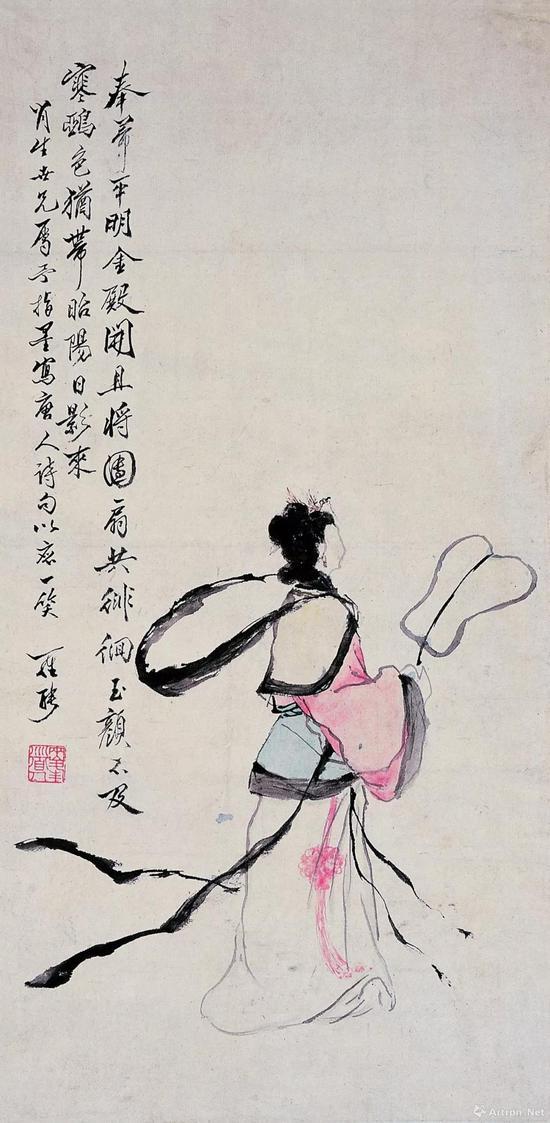 奉帚平明金殿開且將團扇共徘徊玉顏不及
寒鴉色猶帶昭陽日影來
肖生世兄屬予指墨寫唐人詩句以一笑 羅聘
Artron.Net